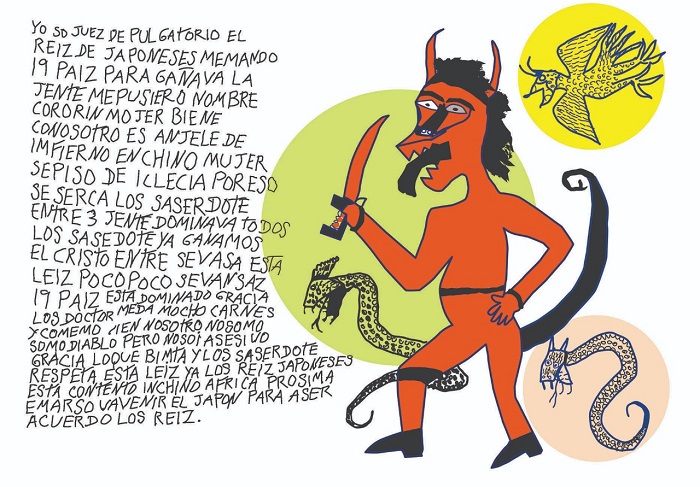 YO SO JUEZ DE PULGATORIO EL
REIZ DE JAPONESES MEMANDO
19 PAIZ PARA GAÑAVA LA
JENTE ME PUSIERO NOMBRE
CORORIN MOJER BIENE
CONOSOTRO ES ANJELE DE
IMFIERNO EN CHINO MUJER
SEPISO DE ILLECIA PORESO
SE SERCA LOS SASERDOTE
ENTRE 3 JENTE DOMINAVA TODOS
LOS SASEDOTE YA GANAMOS
EL CRISTO ENTRE SEVASA ESTA
LEIZ POCO POCO SEVANSAZ
19 PAIZ ESTA DOMINADO GRACIA
LOS DOCTOR MEDA MOCHO CARNES
Y COMEMO IEN NOSOTRO NOSOMO
SOMO DIABLO PERO NOSOI ASESIVO
GRACIA LOQUE BIMTA Y LOS SASERDOTE
RESPETA ESTA LEIZ YA LOS REIZ JAPONESES
ESTA CONTENTO INCHINO AFRICA PROSIMA
EMARSO VAVENIR EL JAPON PARA ASER
ACUERDO LOS REIZ.